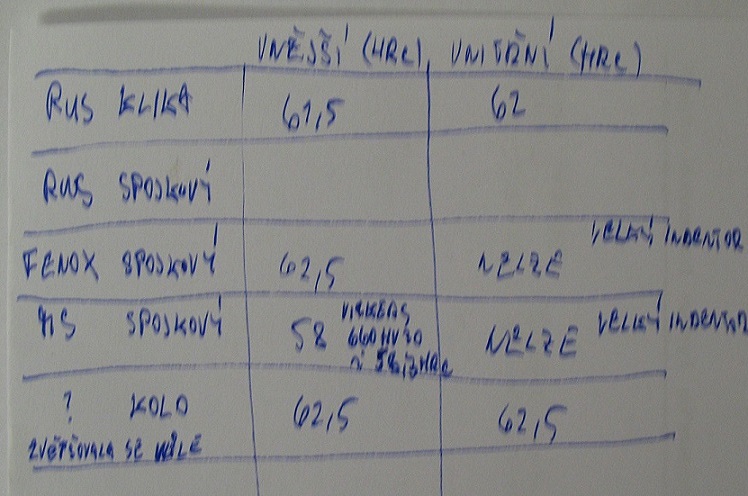 VNĚJŠÍ (HRC) VNITŘNÍ (HRC)
RUS KLIKA 61,5 62
RUS SPOJKOVÝ
FENOX SPOJKOVÝ 62,5 NELZE VELKÝ INDENTOR
SPOJKOVÝ 58 VICKERS 660HV30 58,3HRC NELZE VELKÝ INDENTOR
? KOLO 62,5 62,5
ZVĚTŠOVALA SE VŮLE